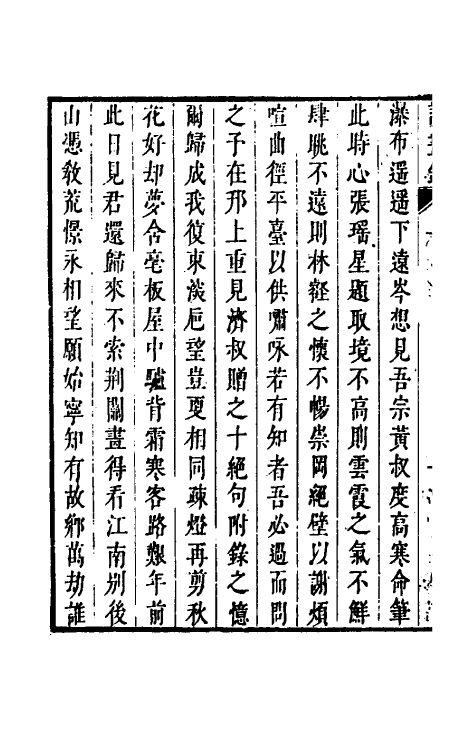 瀑布遥遥下遠岑想見吾宗黃叔度高寒命筆
此時心張瑤星題取境不高則雲霞之氣不鮮
肆眺不遠則林壑之懷不暢崇岡絕壁以謝煩
喧曲徑平臺以供嘯咏若有知者吾必過而問
之子在邗上重見濟叔贈之十絕句附錄之憶
爾歸成我復東淡巵望豈夏相同疎燈再剪秋
花好却夢舍亳板屋中驢背霜寒客路艱年前
此日見君還歸來不索荆關畫得看江南别後
山憑教荒憬永相望願始寧知有故鄉萬劫誰